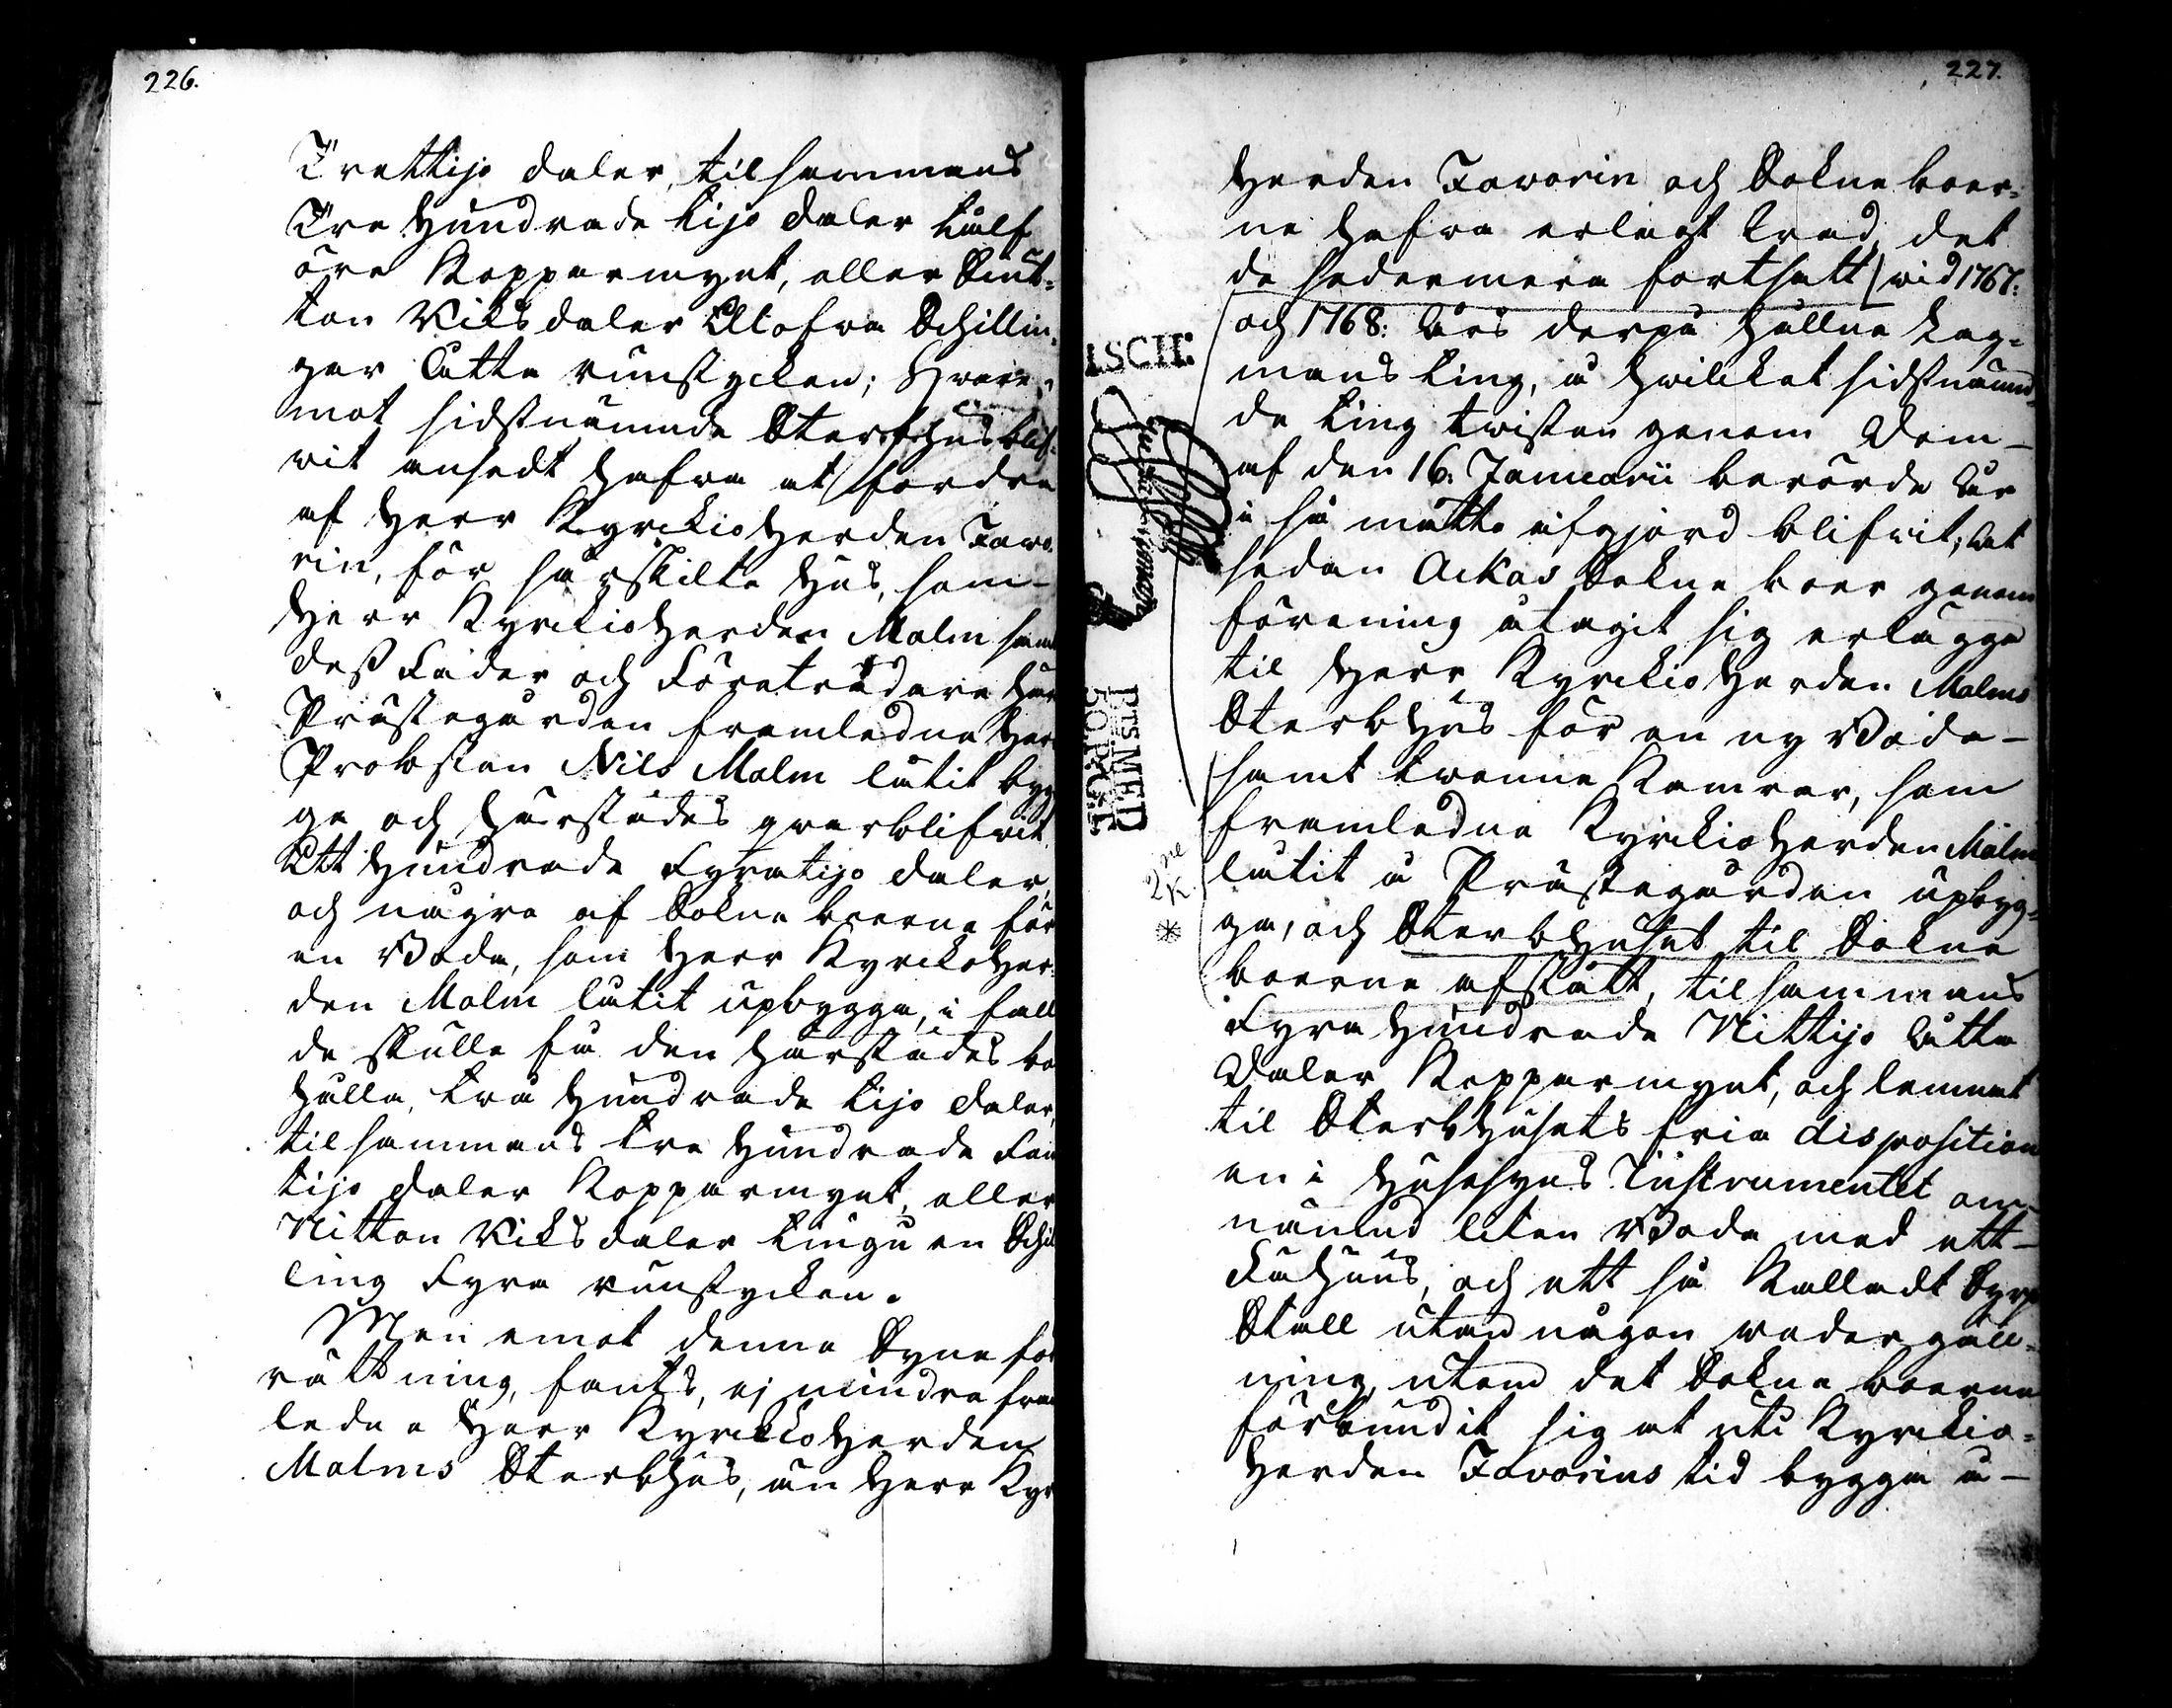 226.
Trettijo daler, tilsammans
Tre Hundrade tijo daler half
öre Kopparmynt, eller Siut-
ton Riksdaler Ellofva Schillin-
gar Åtta runstycken; Hvare-
mot sidstnämnde Sterbhus blif-
vit ansedt hafva at fordra
af Herr Kyrckioherden Favo-
rin, för särskilte hus, som
Herr Kyrckioherden Malm samt
dess Fader och Företrädare här
Prästegården framledne Herr
Probsten Nils Malm låtit byg
ga och härstädes qvarblifvit
Ett Hundrade Fyratijo daler,
och några af Sokneboerne för
en Boda, som Herr Kyrckoher-
den Malm låtit upbygga, i fall
de skulle få den härstädes be
hålla, två Hundrade tijo daler,
tilsammans tre Hundrade Fem
tijo daler Kopparmynt, eller
Nitton Riksdaler tiugu en Schil
ling Fyra runstycken.
Men emot denna Syne för
rättning, fants, ej mindre fram
ledne Herr Kyrckioherden
Malms Sterbhus, än Herr Kyr
227.
Herden Favorin och Sokneboer-
ne hafva erlagt vad, det
de sedermera fortsatt wid 1767:
och 1768: års derpå hållne Lag-
mans ting, å hvilcket sidstnämn-
de ting twisten genom Dom
af den 16. Januarii berörde år
i så motto afgjord blifvit, at
sedan Ackas Sokneboer genom
förening åtagit sig erlägga
til Herr Kyrckioherden Malms
Sterbhus för en ny Boda
samt tvenne Kamrar, som
framledne Kyrckioherden Malm
låtit å Prästegården upbyg-
ga, och Sterbhuset til Sokne
boerne afstått, tilsammans
Fyra Hundrade Nittijo åtta
Daler Kopparmynt, och lemnat
til Sterbhusets fria disposition
en i Husesyns Instrumentet om-
nämnd liten Boda med ett
Fähuus, och ett så Kalladt
Stall utan någon vedergäll-
ning, utom det Sokneboerne
förbundit sig at uti Kyrckio-
Herden Favorins tid bygga å
2ne
K